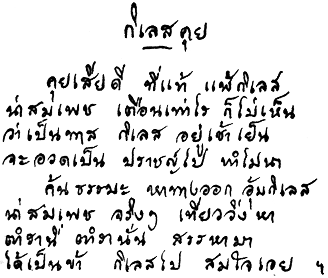 กิเลสคุย
คุยเสียดี ที่แท้ แพ้กิเลส
น่าสมเพช เตือนเท่าไร ก็ไม่เห็น
ว่าเป็นทาส กิเลส อยู่เช้าเย็น
จะอวดเป็น ปราชญ์ไป ทำไมนา
ค้นธรรมะ หาทางออก อุ้มกิเลส
น่าสมเพช จริงๆ เที่ยววิ่งหา
ตำรานี่ ตำรานั่น สรรหามา
ได้เป็นข้า กิเลสไป สมใจเอย ฯ